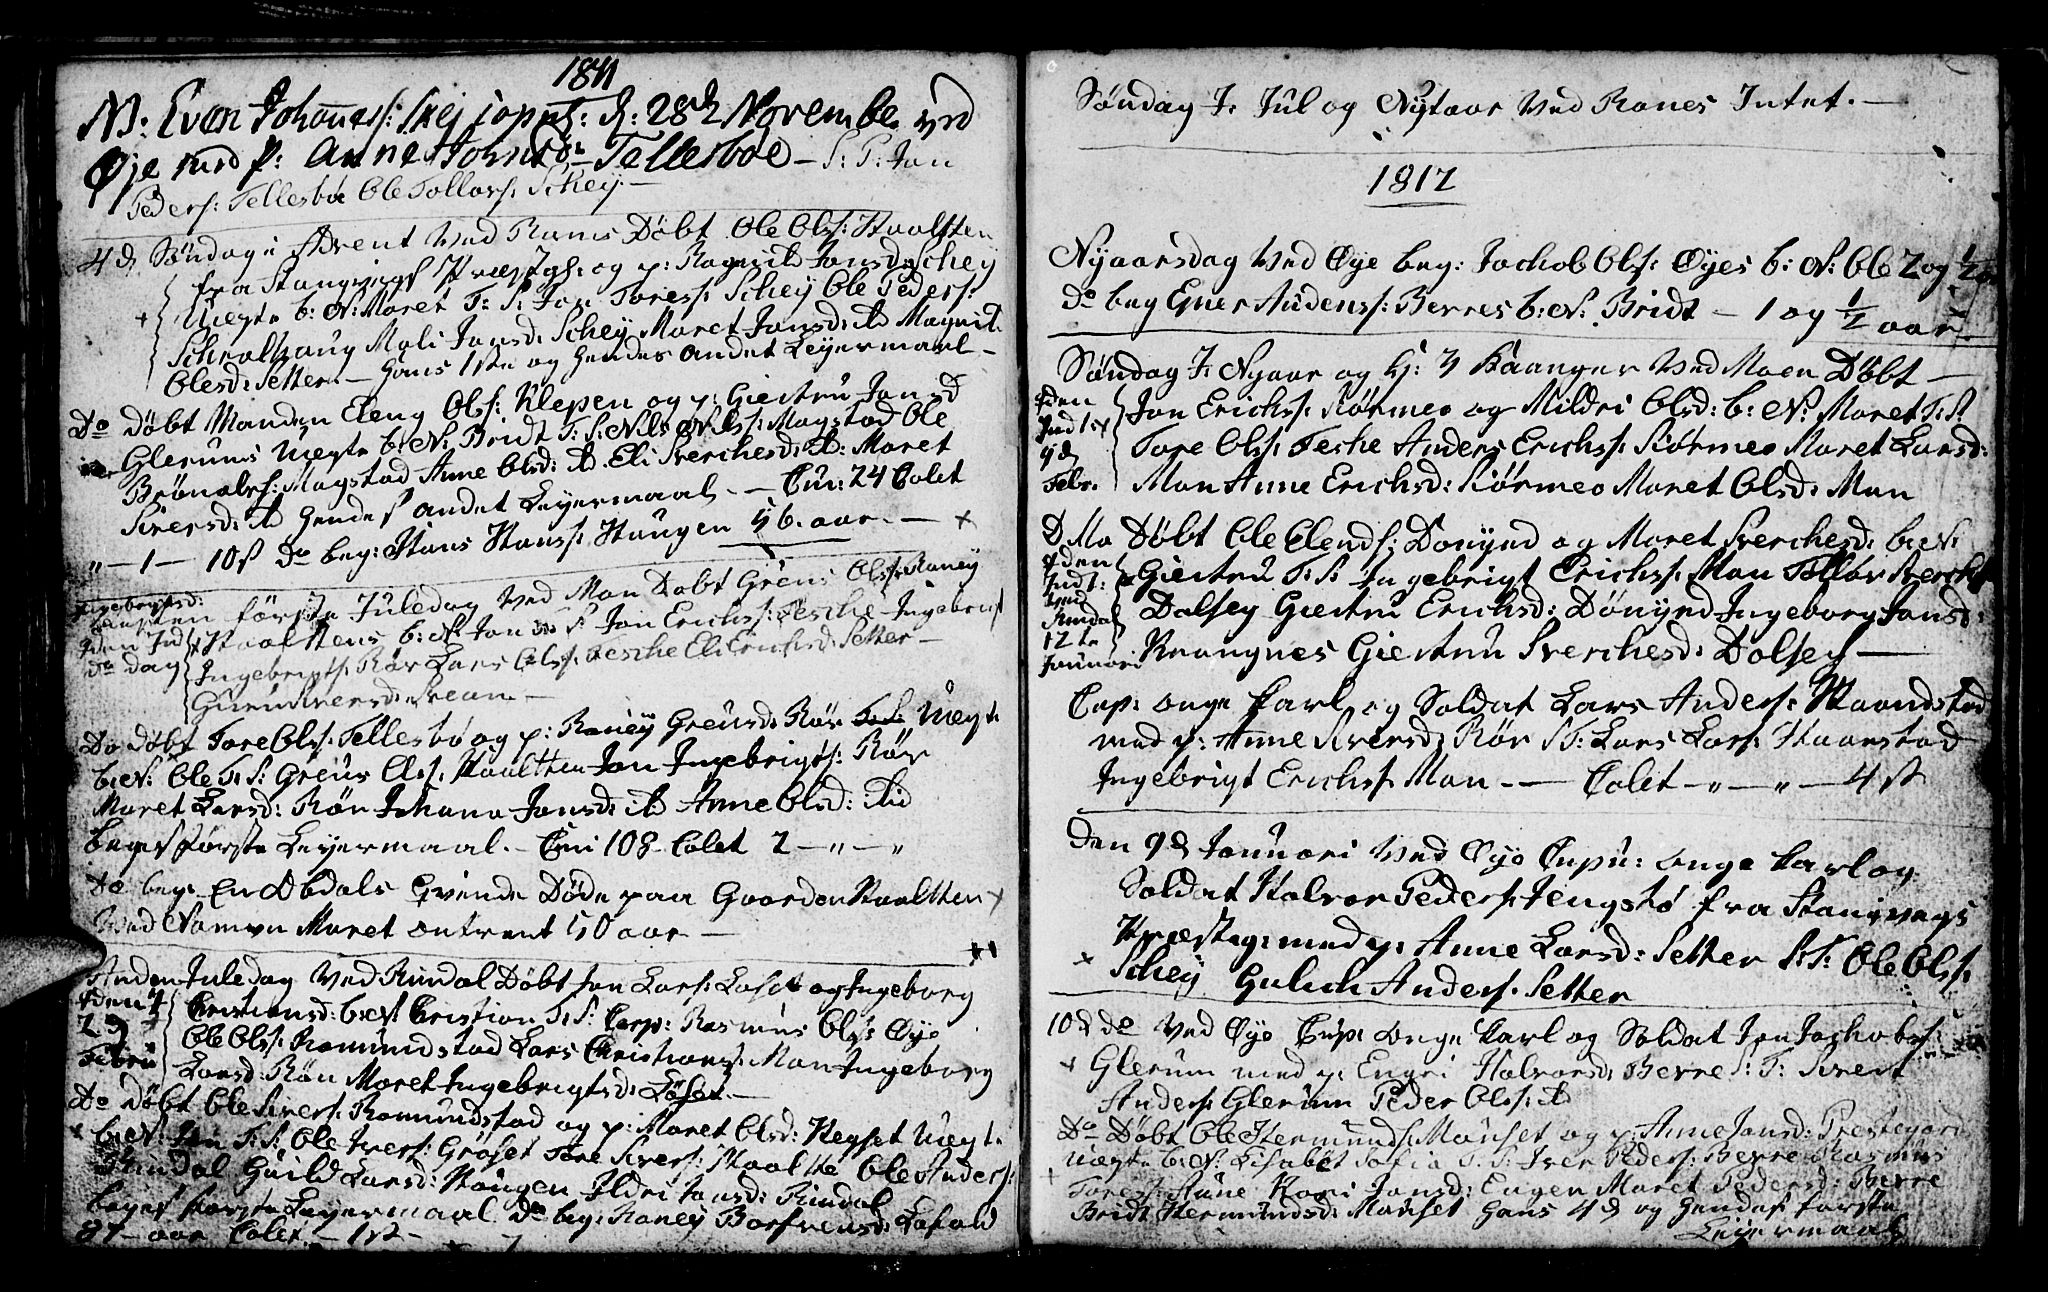 1811
N: Even Johannes: Skej copul: d: 28d November ved
Øje med p: Anne Johnsd: Tellesboe – S: T: Jon
Peders: Tellesbøe Ole Tollofs: Schey –
4d Søndag i Advent ved Ranes Døbt Ole Ols: Haaltten
fra Stangvigs Præstg: og p: Ragnild Jonsd: Schey
Uægte b: N: Maret T: S: Jon Tores: Schey Ole Peders:
Schralthaug Mali Jonsd: Schey Maret Jonsd: ibd Magnil
Olesd: Setter – Hans 1ste og hendes andet Leyermaal –
Do døbt Manden Eleng Ols: Klepen og p: Giertru Jonsd
Glerums Uægte b: N: Bridt T: S: Nils Nils: Magstad Ole
Brønols: Magstad Anne Olsd: ibd. Eli Sverchesd: ibd: Maret
Siversd: ibd hendes andet Leyermaal – Cui: 24 Colet
„ – 1 – 10 s do beg: Hans Hans: Haugen 56. aar. – x
Ingebrigtsd:
første Juledag ved Moen Døbt Greus Ols: Raney
Haalttens b: N: Jon S: Jon Erichs: Tesche Ingebrigt
do dag Ingebrigts: Rør Lars Ols: Tesche Eli Erichsd: Setter –
Guru Iversd: Svean –
Do døbt Tore Ols: Tellesbø og p: Raney Greusd: Rør Uægte
b: N: Ole T: S: Greus Ols: Haaltten Jon Ingebrigts: Rør
Maret Larsd: Røn Johana Jonsd: ibd Anne Olsd: ibid
beges første Leyermaal. – Cui 108 Colet 2 – „ – „
Do beg: En Obdals Qvinde Døde paa Gaarden Haaltten x
Ved Namvn Maret ontrent 50 aar –
Anden Juledag Ved Rindal Døbt Jon Lars: Løset og Ingeborg
Christiansd: b: N: Cristian T: S: Corp: Rasmus Ols: Øye
Ole Ols: Romundstad Lars Christians: Moen Ingeborg
Larsd: Røn Maret Ingebrigtsd: Løset –
Do døbt Ole Sivers: Romundstad og p: Maret Olsd: Hegset Uægte
b: N: Jon T: S: Ole Ivers: Grøset Tore Sivers: Haaltte Ole Anders:
Rindal Guild Larsd: Haugen Ildri Jonsd: Rindal
beges første Leyermaal do beg: Raney Bersvensd: Lafald
87 – aar Colet – 1 s –
Søndag F. Jul og Nytaar ved Ranes Intet. –
1812
Nyaarsdag ved Øye beg: Jachob Ols: Øyes b: N: Ole 2 og 1/2 aar
do beg Ener Audens: Berres b: N: Bridt – 1 og 1/2 aar
Søndag F. Nyaar og H: 3 Kaanger ved Moen Døbt –
Jon Erichs: Kørmeo og Mildri Olsd: b: N: Maret T: S:
Tore Ols: Tesche Anders Erichs: Kørmeo Maret Larsd:
Febr. Moen Anne Erichsd: Kørmeo Maret Olsd: Moen
D: Mo Døbt Ole Elends: Dønynd og Maret Sverchesd: b: N:
Giertru T: S: Ingebrigt Erichs: Moen Tollov Sverches:
Dalsey Giertru Erichsd: Dønynd Ingeborg Jonsd:
Januari Kvangnes Giertru Sverchesd: Dalsey –
Cop: unge Karl og Soldat Lars Anders: Haanstad
med p: Anne Siversd: Rør S: T: Lars Lars: Haanstad
Ingebrigt Erichs: Moen – Colet – „ – „ – 4 s
Den 9d Januari ved Øye Copu: unge Karl og
Soldat Halvor Peders: Fengstø fra Stangvigs
Præsteg: med p: Anne Larsd: Setter S: T: Ole Ols:
x Schey Gulich Anders: Setter
10d do Ved Øye Cop: unge Karl og Soldat Jon Jachobs:
x Glerum med p: Engri Halvorsd: Berre S: T: Sivert
Anders: Glerum Peder Ols: ibd
Do Døbt Ole Hermunds: Monset og p: Anne Jonsd: Prestegard
Uægte b: N: Lisabet Sofia T: S: Iver Peders: Berre Rasmus
Tores: Aune Kari Jonsd: Eugen Maret Pedersd: Berre
Bridt Hermundsd: Monset Hans 4d og hendes første
Leyermaal